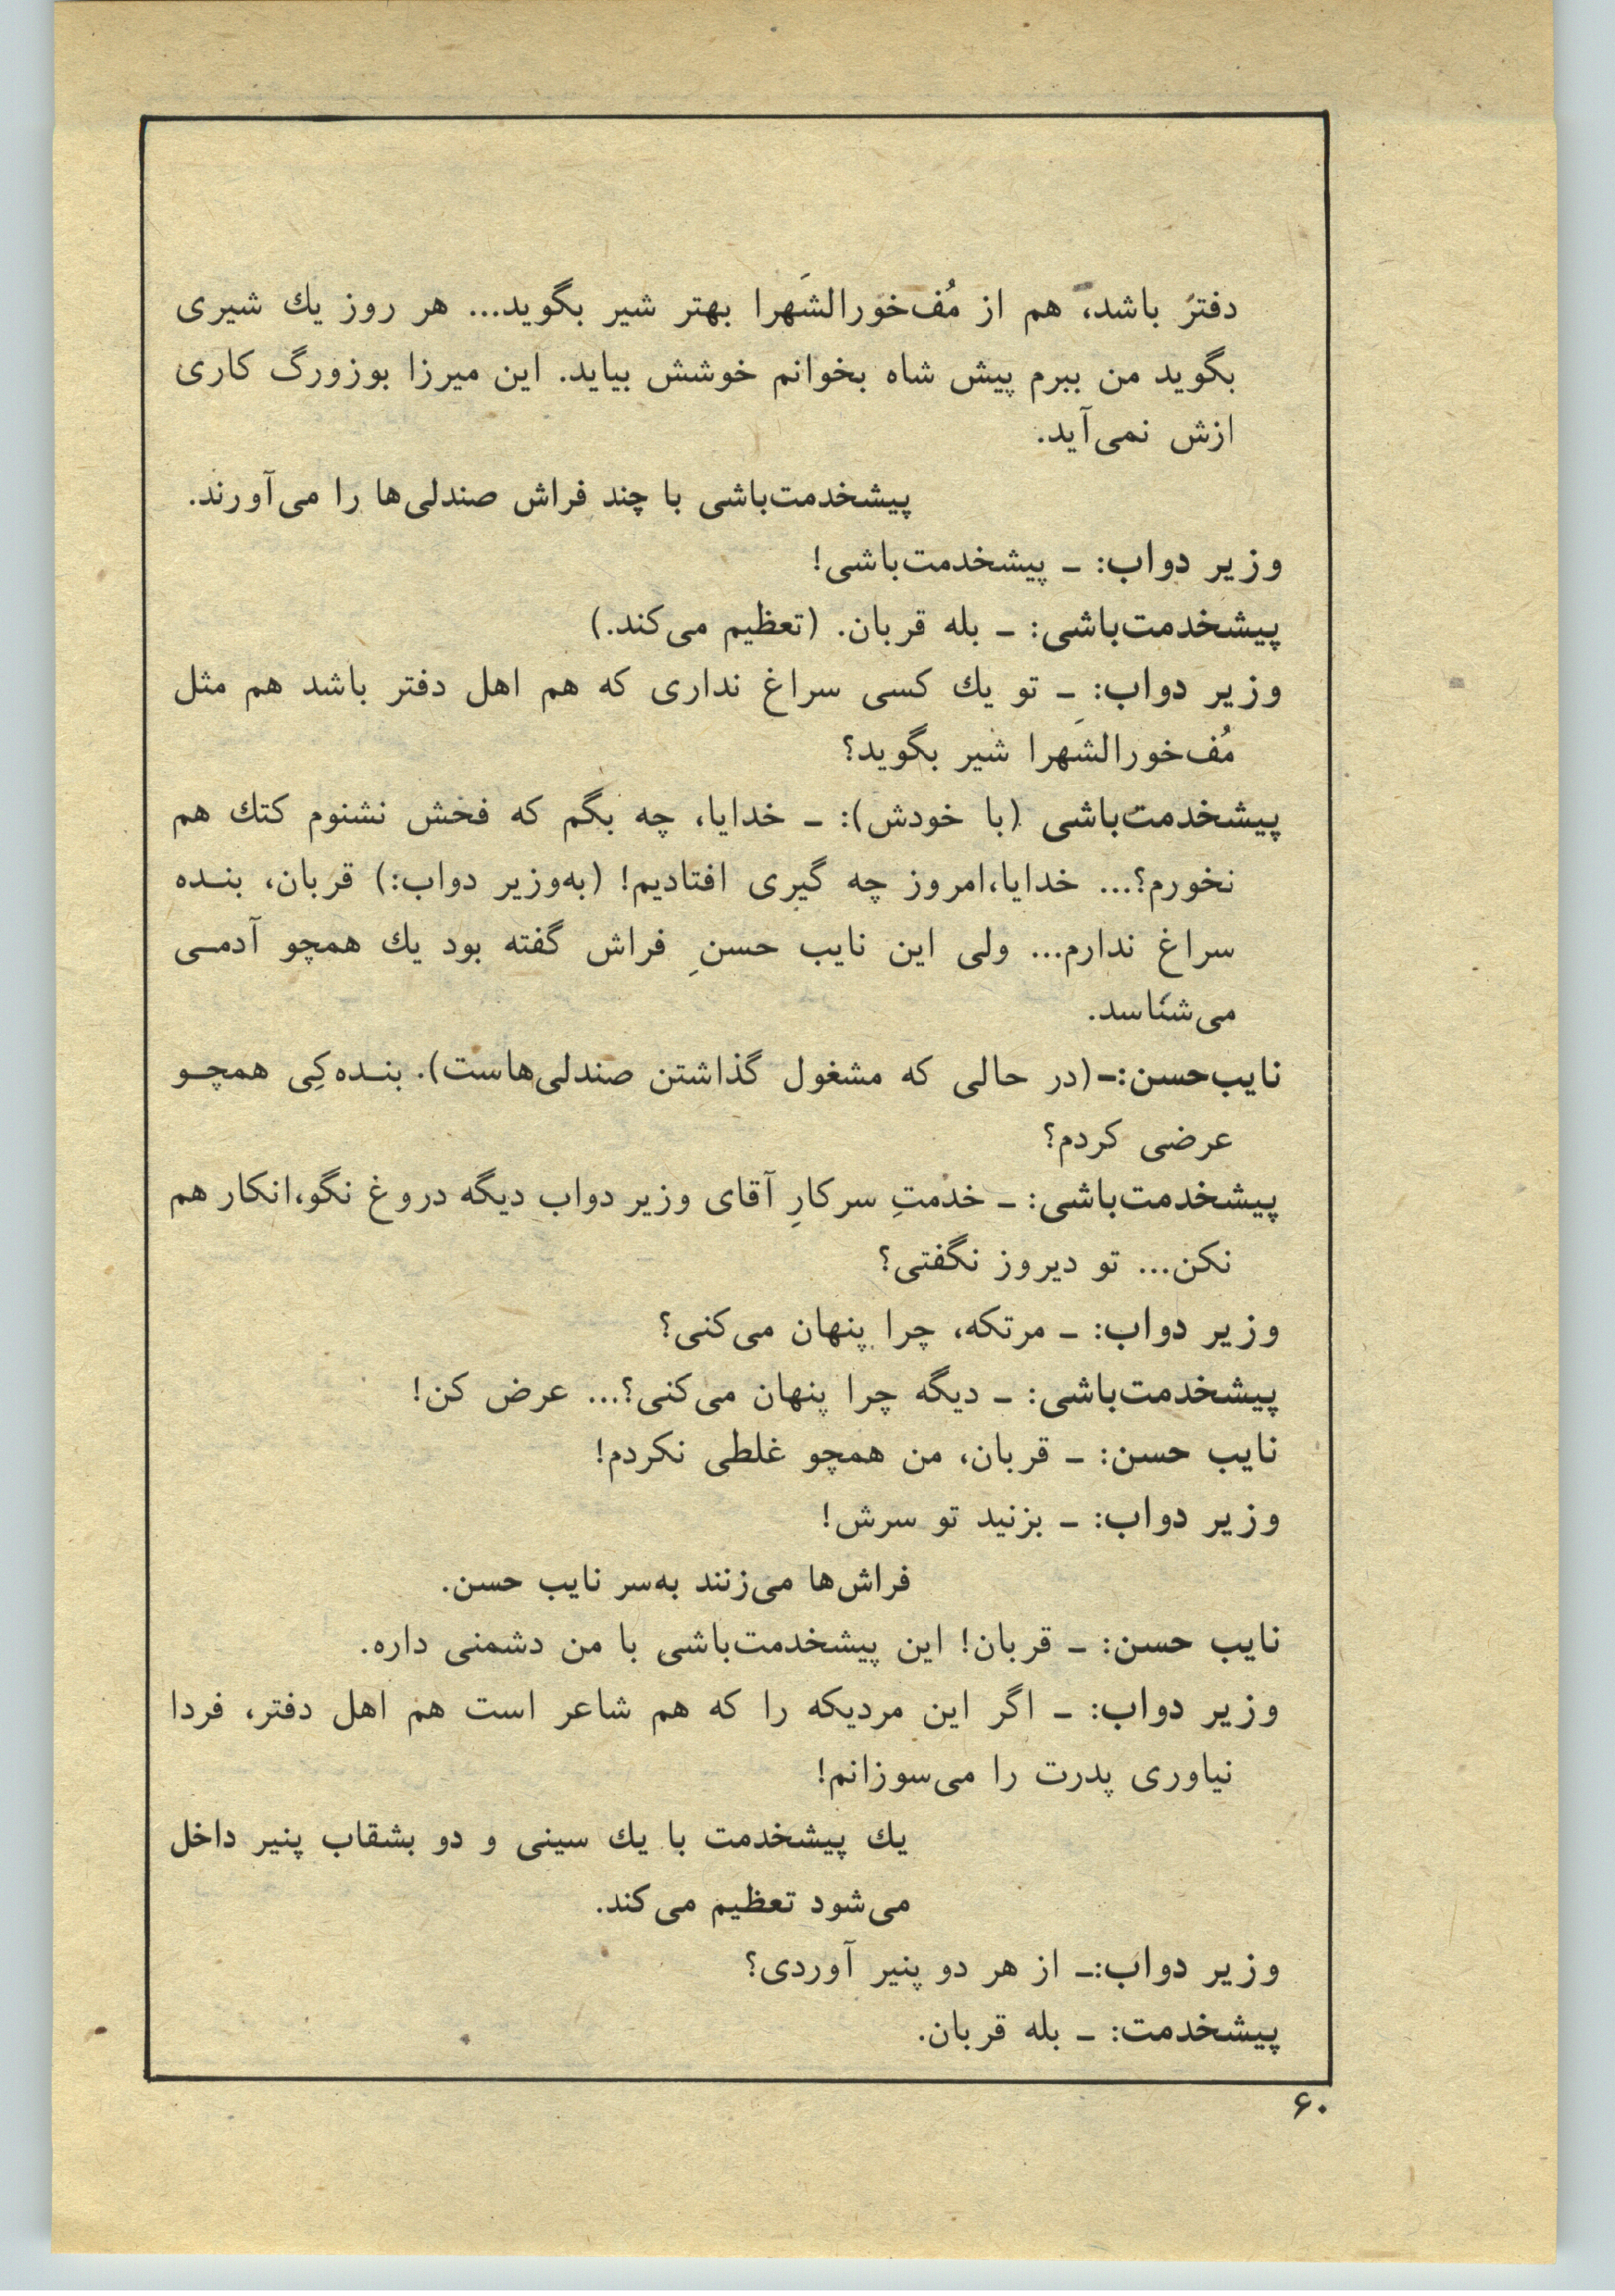 دفتر باشد، هم از مُف‌خورالشَهرا بهتر شیر بگوید... هر روز یك شیری
بگوید من ببرم پیش شاه بخوانم خوشش بیاید. این میرزا بوزورگ کاری
ازش نمی‌آید.
پیشخدمت‌باشی با چند فراش صندلی‌ها را می‌آورند.
وزیر دواب: ـ پیشخدمت‌باشی!
پیشخدمت‌باشی: ـ بله قربان. (تعظیم می‌کند.)
وزیر دواب: ـ تو یك کسی سراغ نداری که هم اهل دفتر باشد هم مثل
مُف‌خورالشَهرا شیر بگوید؟
پیشخدمت‌باشی (با خودش): ـ خدایا، چه بگم که فخش نشنوم کتك هم
نخورم؟... خدایا،امروز چه گیری افتادیم! (به‌وزیر دواب:) قربان، بنـده
سراغ ندارم... ولی این نایب حسنِ فراش گفته بود یك همچو آدمـی
می‌شناسد.
نایب‌حسن:ـ(در حالی که مشغول گذاشتن صندلی‌هاست). بنـده‌کِی همچـو
عرضی کردم؟
پیشخدمت‌باشی: ـ خدمتِ سرکارِ آقای وزیر دواب دیگه دروغ نگو،انکار هم
نکن... تو دیروز نگفتی؟
وزیر دواب: ـ مرتکه، چرا پنهان می‌کنی؟
پیشخدمت‌باشی: ـ دیگه چرا پنهان می‌کنی؟... عرض کن!
نایب حسن: ـ قربان، من همچو غلطی نکردم!
وزیر دواب: ـ بزنید تو سرش!
فراش‌ها می‌زنند به‌سر نایب حسن.
نایب حسن: ـ قربان! این پیشخدمت‌باشی با من دشمنی داره.
وزیر دواب: ـ اگر این مردیکه را که هم شاعر است هم اهل دفتر، فردا
نیاوری پدرت را می‌سوزانم!
یك پیشخدمت با یك سینی و دو بشقاب پنیر داخل
می‌شود تعظیم می‌کند.
وزیر دواب:ـ از هر دو پنیر آوردی؟
پیشخدمت: ـ بله قربان.
۶۰